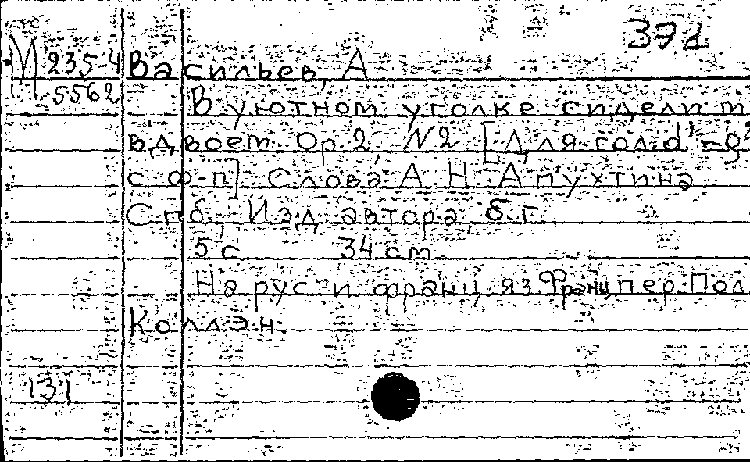 371
М 235-4 Васильев, А
5562 В уютном уголке сидели м
вдвоем. Ор.2, N2 [Для гол. d'-g²
с ф-п]. Слова А. Н. Апухтина
Спб., Изд. автора, б.г.
5 с 34 см.
На рус. и франц. яз. Франц. пер. Пол
Коллэн.
131